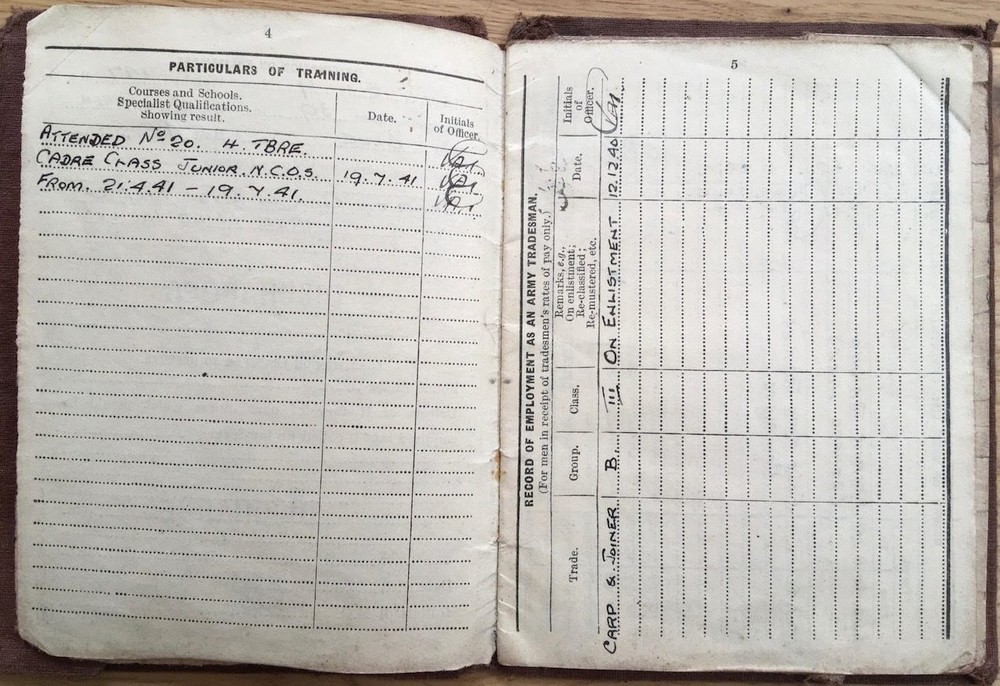 4
PARTICULARS OF TRAINING.
Courses and Schools.
Specialist Qualifications.
Showing result.
Date.
Initials
of Officer.
ATTENDED No 20. H. TBRE.
CADRE CLASS JUNIOR. N.C.O.S. 19.7.41
FROM. 21.4.41 – 19.7.41.
5
RECORD OF EMPLOYMENT AS AN ARMY TRADESMAN.
(For men in receipt of tradesmen's rates of pay only.)
Trade.
Group.
Class.
Remarks, e.g.,
On enlistment;
Re-classified;
Re-mustered, etc.
Date.
Initials
of
Officer.
CARP & JOINER B. III ON ENLISTMENT 12.12.40